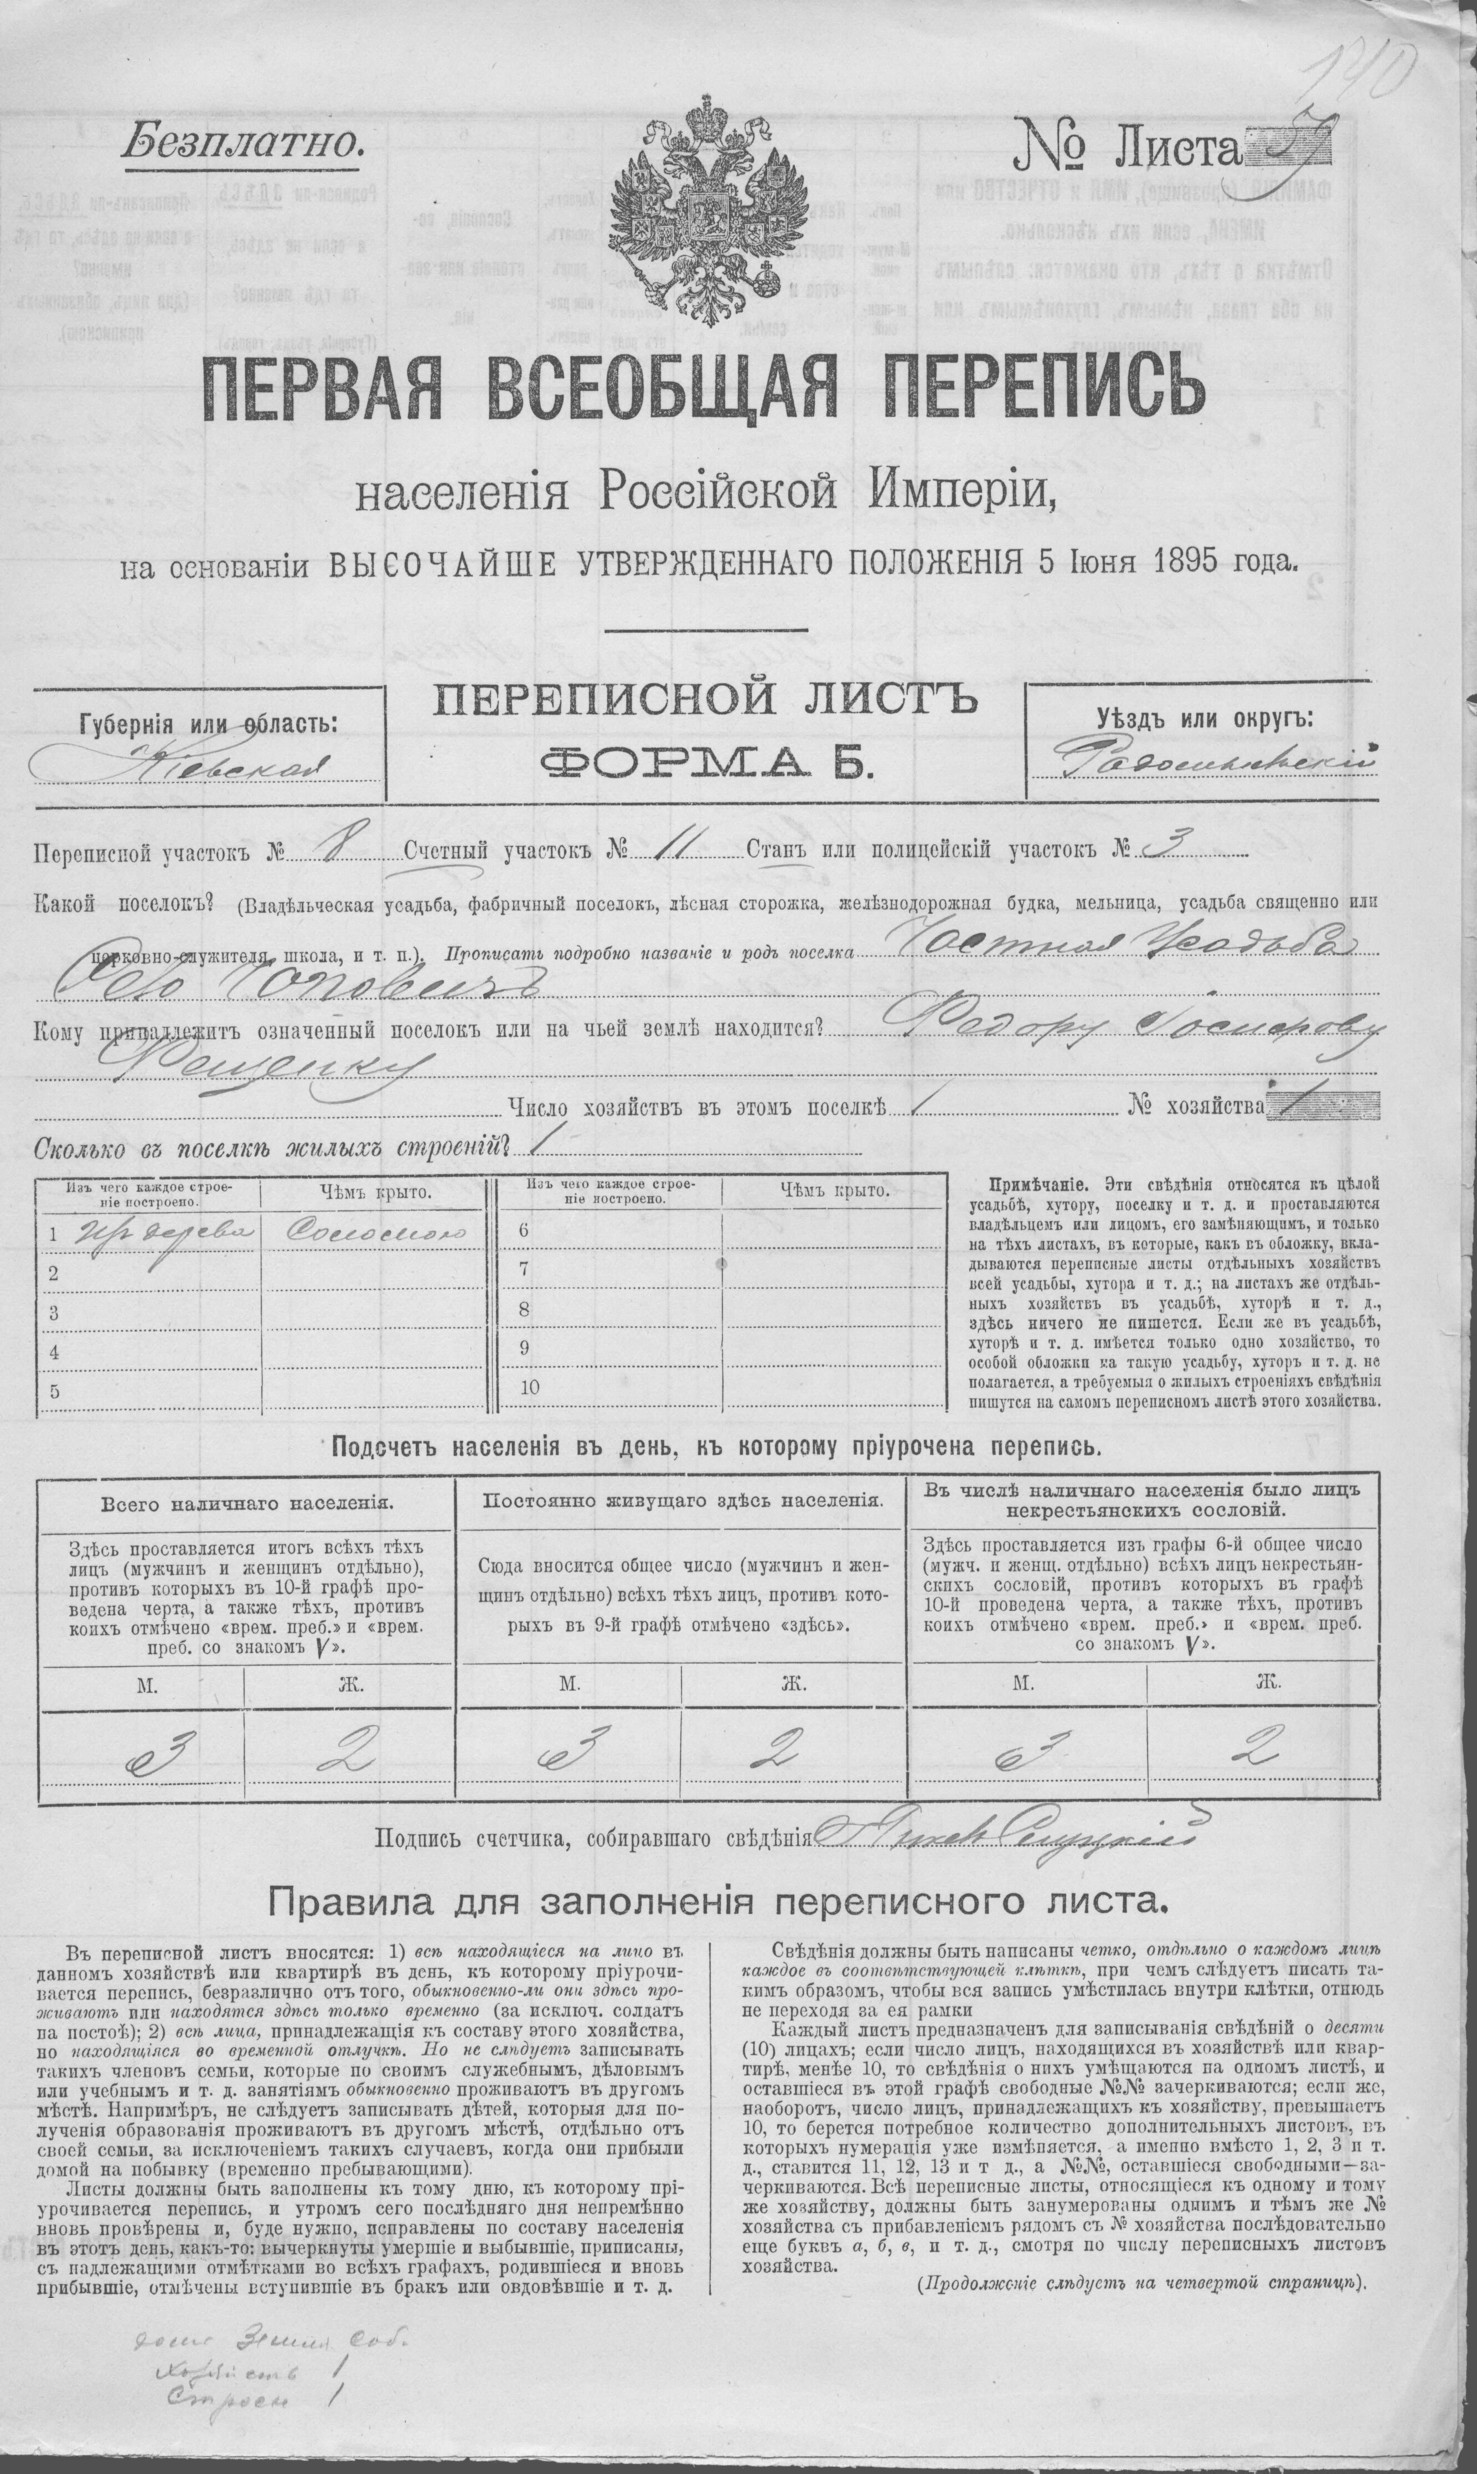 140
Безплатно.
№ Листа
ПЕРВАЯ ВСЕОБЩАЯ ПЕРЕПИСЬ
населенія Россійской Имперіи,
на основаніи ВЫСОЧАЙШЕ УТВЕРЖДЕННАГО ПОЛОЖЕНІЯ 5 Іюня 1895 года.
ПЕРЕПИСНОЙ ЛИСТЪ
ФОРМА Б.
Губернія или область:
Кіевская
Уѣздъ или округъ:
Радомысльскій
Переписной участокъ № 8 Счетный участокъ № 11 Станъ или полицейскій участокъ № 3
Какой поселокъ? (Владѣльческая усадьба, фабричный поселокъ, лѣсная сторожка, желѣзнодорожная будка, мельница, усадьба священно или
церковно-служителя, школа, и т. п.). Прописать подробно названіе и родъ поселка Частная Усадьба
Село Чоповичъ
Кому принадлежитъ означенный поселокъ или на чьей землѣ находится? Федору Іосифову
Фещенку
Число хозяйствъ въ этомъ поселкѣ 1 № хозяйства 1
Сколько въ поселкѣ жилыхъ строеній? 1
Изъ чего каждое строе-
ніе построено. Чѣмъ крыто. Изъ чего каждое строе-
ніе построено. Чѣмъ крыто.
1 изъ дерева Соломою 6
2 7
3 8
4 9
5 10
Примѣчаніе. Эти свѣдѣнія относятся къ цѣлой
усадьбѣ, хутору, поселку и т. д. и проставляются
владѣльцемъ или лицомъ, его замѣняющимъ, и только
на тѣхъ листахъ, въ которые, какъ въ обложку, вкла-
дываются переписные листы отдѣльныхъ хозяйствъ
всей усадьбы, хутора и т. д.; на листахъ же отдѣль-
ныхъ хозяйствъ въ усадьбѣ, хуторѣ и т. д.,
здѣсь ничего не пишется. Если же въ усадьбѣ,
хуторѣ и т. д. имѣется только одно хозяйство, то
особой обложки на такую усадьбу, хуторъ и т. д. не
полагается, а требуемыя о жилыхъ строеніяхъ свѣдѣнія
пишутся на самомъ переписномъ листѣ этого хозяйства.
Подсчетъ населенія въ день, къ которому пріурочена перепись.
Всего наличнаго населенія.
Здѣсь проставляется итогъ всѣхъ тѣхъ
лицъ (мужчинъ и женщинъ отдѣльно),
противъ которыхъ въ 10-й графѣ про-
ведена черта, а также тѣхъ, противъ
коихъ отмѣчено «врем. преб.» и «врем.
преб. со знакомъ V».
М. Ж.
3 2
Постоянно живущаго здѣсь населенія.
Сюда вносится общее число (мужчинъ и жен-
щинъ отдѣльно) всѣхъ тѣхъ лицъ, противъ кото-
рыхъ въ 9-й графѣ отмѣчено «здѣсь».
М. Ж.
3 2
Въ числѣ наличнаго населенія было лицъ
некрестьянскихъ сословій.
Здѣсь проставляется изъ графы 6-й общее число
(мужч. и женщ. отдѣльно) всѣхъ лицъ некрестьян-
скихъ сословій, противъ которыхъ въ графѣ
10-й проведена черта, а также тѣхъ, противъ
коихъ отмѣчено «врем. преб.» и «врем. преб.
со знакомъ V».
М. Ж.
3 2
Подпись счетчика, собиравшаго свѣдѣнія
Правила для заполненія переписного листа.
Въ переписной листъ вносятся: 1) всѣ находящіеся на лицо въ
данномъ хозяйствѣ или квартирѣ въ день, къ которому пріурочи-
вается перепись, безразлично отъ того, обыкновенно-ли они здѣсь про-
живаютъ или находятся здѣсь только временно (за исключ. солдатъ
на постоѣ); 2) всѣ лица, принадлежащія къ составу этого хозяйства,
но находящіяся во временной отлучкѣ. Но не слѣдуетъ записывать
такихъ членовъ семьи, которые по своимъ служебнымъ, дѣловымъ
или учебнымъ и т. д. занятіямъ обыкновенно проживаютъ въ другомъ
мѣстѣ. Напримѣръ, не слѣдуетъ записывать дѣтей, которыя для по-
лученія образованія проживаютъ въ другомъ мѣстѣ, отдѣльно отъ
своей семьи, за исключеніемъ такихъ случаевъ, когда они прибыли
домой на побывку (временно пребывающими).
Листы должны быть заполнены къ тому дню, къ которому прі-
урочивается перепись, и утромъ сего послѣдняго дня непремѣнно
вновь провѣрены и, буде нужно, исправлены по составу населенія
въ этотъ день, какъ-то: вычеркнуты умершіе и выбывшіе, приписаны,
съ надлежащими отмѣтками во всѣхъ графахъ, родившіеся и вновь
прибывшіе, отмѣчены вступившіе въ бракъ или овдовѣвшіе и т. д.
Свѣдѣнія должны быть написаны четко, отдѣльно о каждомъ лицѣ
каждое въ соотвѣтствующей клѣткѣ, при чемъ слѣдуетъ писать та-
кимъ образомъ, чтобы вся запись умѣстилась внутри клѣтки, отнюдь
не переходя за ея рамки
Каждый листъ предназначенъ для записыванія свѣдѣній о десяти
(10) лицахъ; если число лицъ, находящихся въ хозяйствѣ или квар-
тирѣ, менѣе 10, то свѣдѣнія о нихъ умѣщаются на одномъ листѣ, и
оставшіеся въ этой графѣ свободные №№ зачеркиваются; если же,
наоборотъ, число лицъ, принадлежащихъ къ хозяйству, превышаетъ
10, то берется потребное количество дополнительныхъ листовъ, въ
которыхъ нумерація уже измѣняется, а именно вмѣсто 1, 2, 3 и т.
д., ставится 11, 12, 13 и т д., а №№, оставшіеся свободными—за-
черкиваются. Всѣ переписные листы, относящіеся къ одному и тому
же хозяйству, должны быть занумерованы однимъ и тѣмъ же №
хозяйства съ прибавленіемъ рядомъ съ № хозяйства послѣдовательно
еще буквъ а, б, в, и т. д., смотря по числу переписныхъ листовъ
хозяйства.
(Продолженіе слѣдуетъ на четвертой страницѣ).
Земля соб.
Хозяйствъ 1
Строен 1